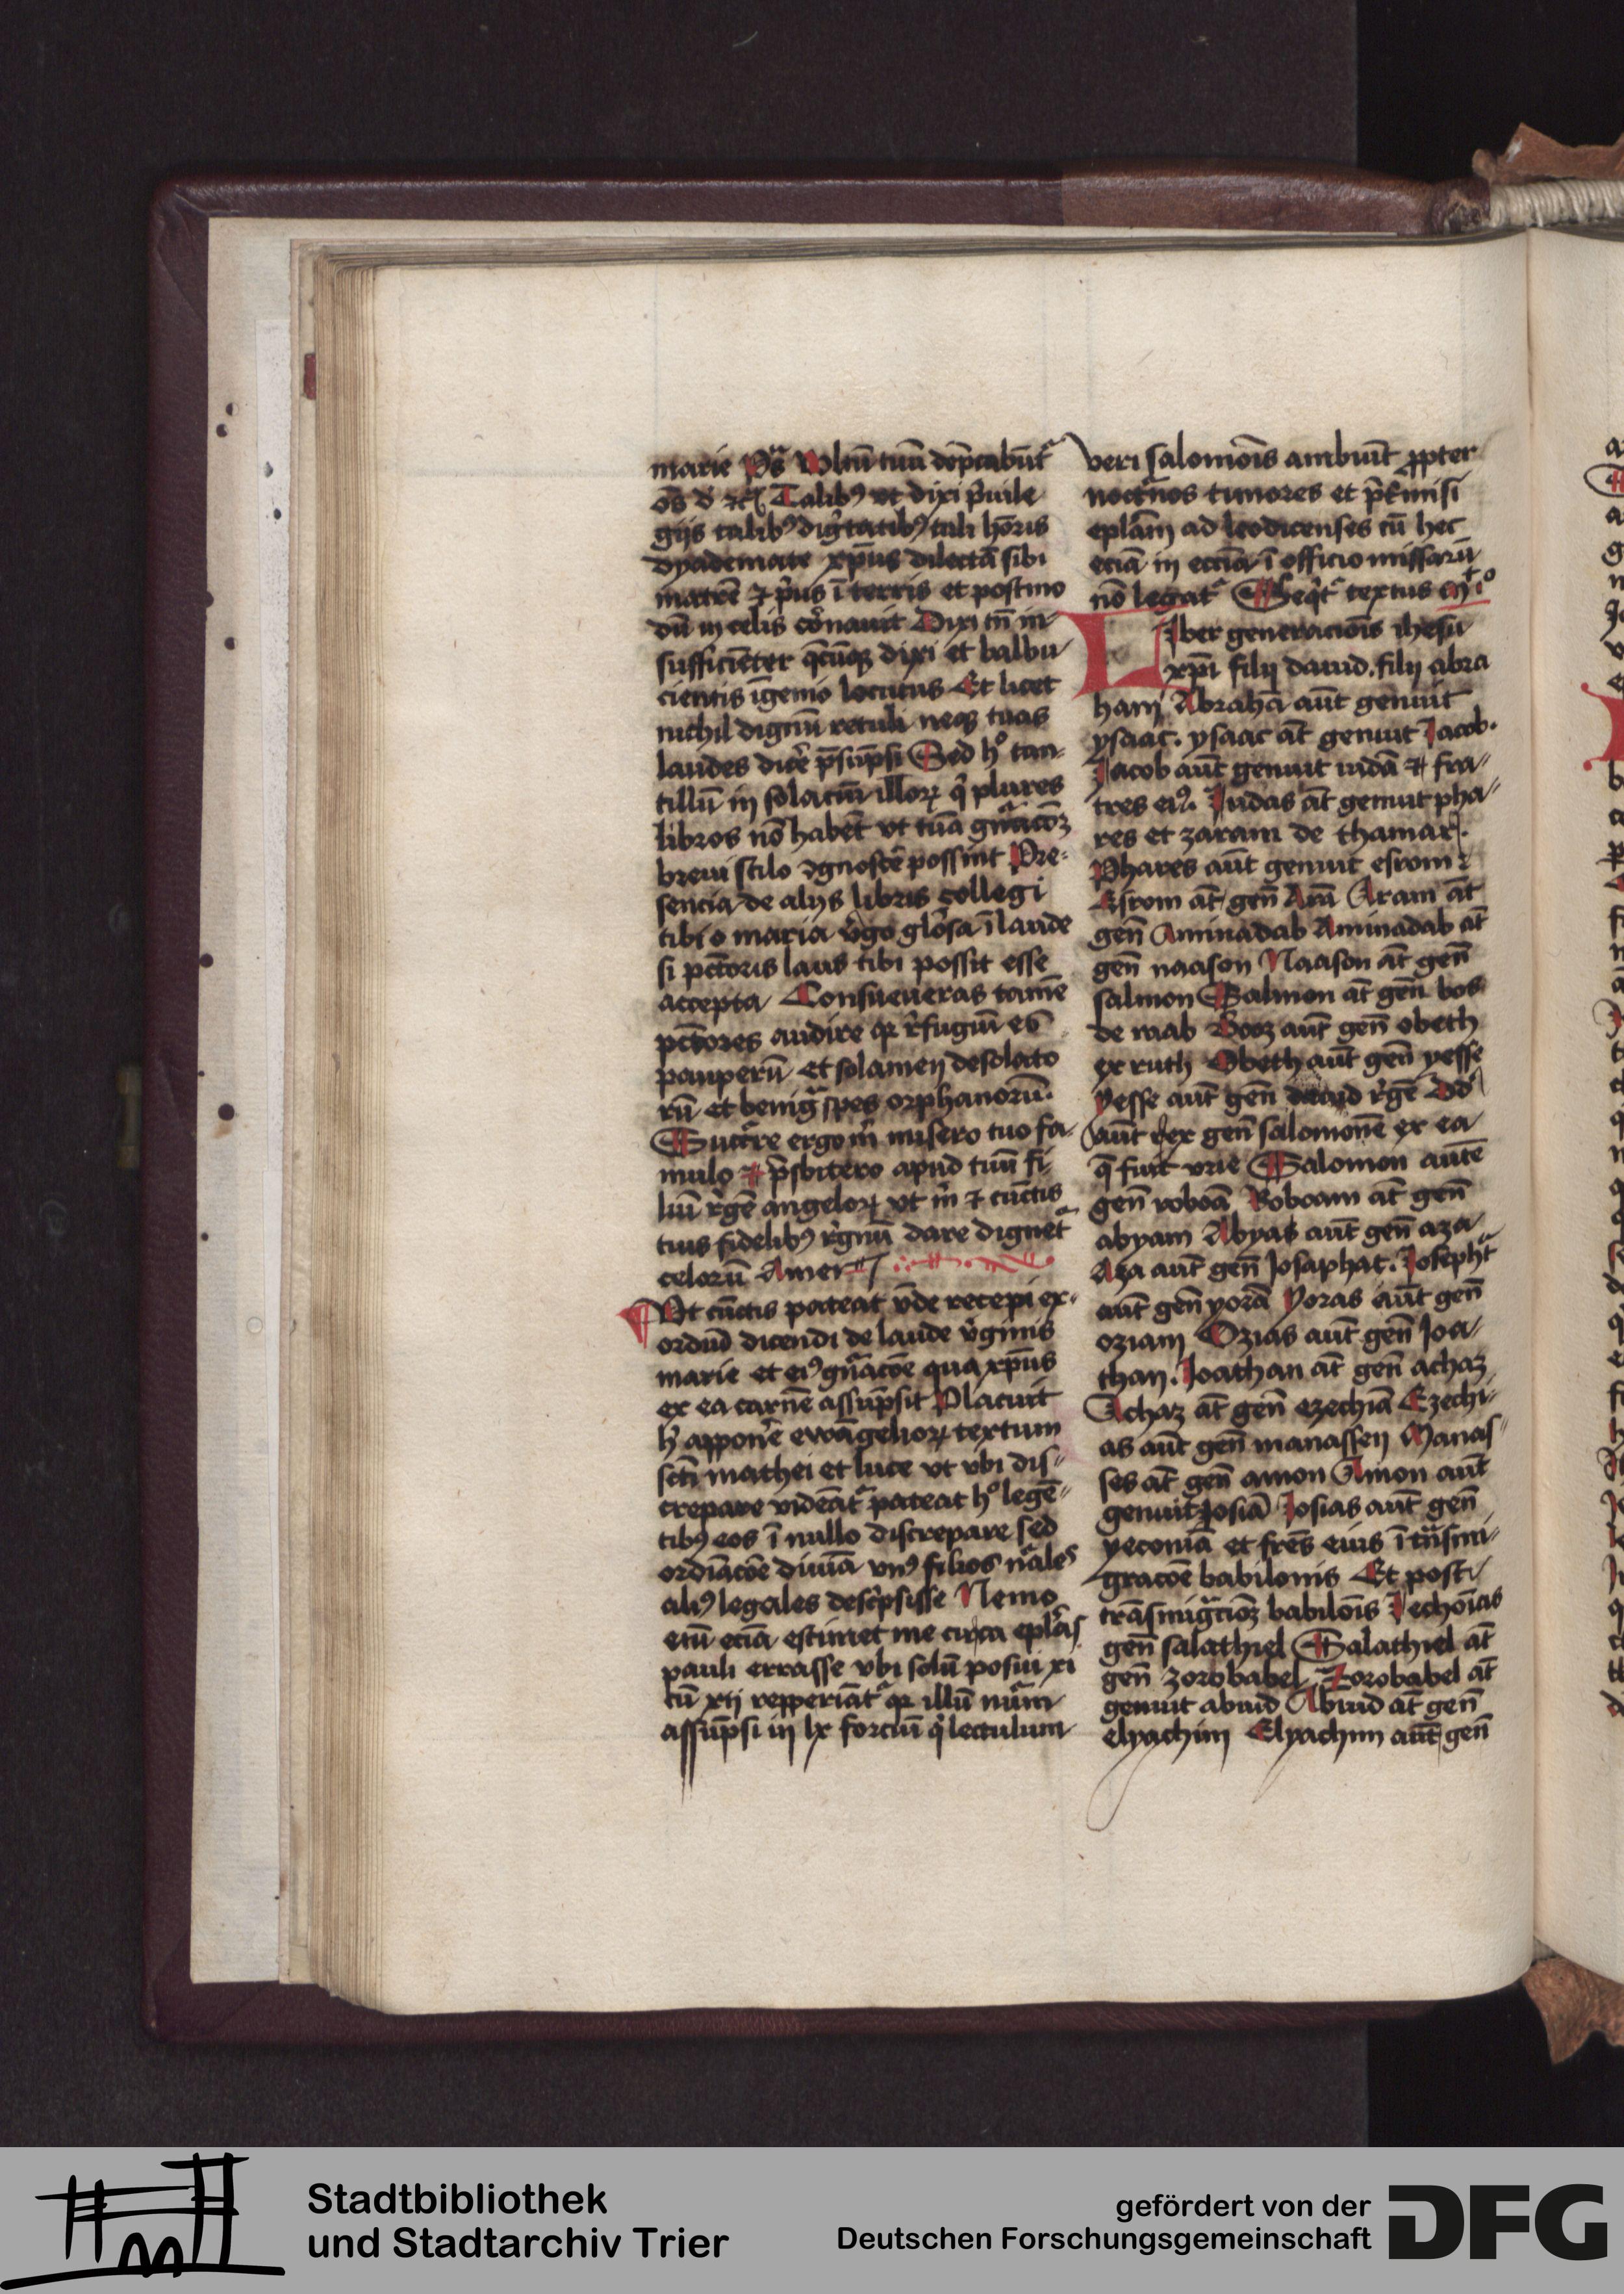 marie Ps̄ Vultū tuū dep̄cabūtr
oēs d̄ zc̄ Talibꝯ vt dixi p̄uile
gijs talibꝯ dig̾tatibꝯ tali hōris
dyademate xp̄us dilectā sibi
matrē ⁊ p̾us ī terris et postmo
dū in celis cōronauit Dixi tn̄ in
sufficiēter qcūqꝫ dixi et balbu
cientis īgenio locutus Et licet
nichil dignū retuli neqꝫ tuas
laudes dice̾ p̄sūpsi Sed h° tan
tillū in solaciū illoꝝ q̾ plures
libros nō habēt vt tuā gn̄acōꝫ
breui stilo ꝯgnosce̾ possint Pre
sencia de alijs libris collegi
tibi o maria v̾go glo̾sa ī laude
si pctōris laus tibi possit esse
accepta Consueueras tamē
pctōres audire qꝛ r̾fugiū es
pauperū et solamen desolato
rū et benig̾ spes orphanorū.
Succ̾re ergo m̄ misero tuo fa
mulo ⁊ p̄sbitero apud tuū fi
liū r̾gē angeloꝝ vt m̄ ⁊ cūctis
tuis fidelibꝯ r̾gnū dare dignetr
celorū Amen
Vt cūctis pateat v̄de recepi ex
ordiū dicendi de laude v̾ginis
marie et eiꝯ gn̄acōe qua xp̄us
ex ea carnē assūpsit Placuit
h̾ appone̾ ewāgelioꝝ textum
scti mathei et luce vt vbi dis
crepare videātr pateat h° legē
tibꝯ eos ī nullo discrepare sed
ordīacōe diuīa vnꝯ filios nr̄ales
aliꝯ legales desc̾psisse Nemo
eciā estimet me circa epl̄as
pauli errasse vbi solū posui xi
cū xij repperiātr qꝛ illū nūm
assūpsi in lx forciū q̾ lectulum
veri salomōis ambiūt ꝓpter
noctr̄nos timores et p̄t̾misi
epl̄am ad leodicenses cū hec
eciā in eccīa ī officio missarū
nō legatr Seq̾tr textus mt°
Liber generacōis ihesu
xp̄i filij dauid. filij abra
ham Abrahā aūt genuit
ysaac. ysaac at̄ genuit Jacob.
Jacob aūt genuit iudā ⁊ fra
tres eiꝯ. Judas at̄ genuit pha
res et zaram de thamar.
Phares aūt genuit esrom
Esrom at̄ gen̄ Arā Aram at̄
gen̄ Aminadab Aminadab at̄
gen̄ naason Naason at̄ gen̄
salmon Salmon at̄ gen̄ bos
de raab Booz aūt gen̄ obeth
ex ruth Obeth aūt gen̄ yesse
Yesse aūt gen̄ dauid r̾gē Dd̄
aūt rex gen̄ salomonē ex ea
q̄ fuit vrie Salomon autē
gen̄ roboā Roboam at̄ gen̄
abyam Abyas aūt gen̄ aza
Aza aūt gen̄ Josaphat. Josephat
aūt gen̄ yorā Yoras aūt gen̄
oziam Ozias aūt gen̄ Joa
than. Joathan at̄ gen̄ achaz
Achaz at̄ gen̄ ezechiā Ezechi
as aūt gen̄ manassen Manas
ses at̄ gen̄ amon Amon aūt
genuit Josiā Josias aūt gen̄
yeconiā et fr̄es eius ī tn̄smi
gracōe babilonis Et post
trāsmig̾ciōꝫ babilōis Jechōias
gen̄ salathiel Salathiel at̄
gen̄ zorobabel Zorobabel at̄
genuit abiud Abiud at̄ gen̄
elyachim Elyachim aūt gen̄
Stadtbibliothek
und Stadtarchiv Trier
gefördert von der
Deutschen Forschungsgemeinschaft
DFG